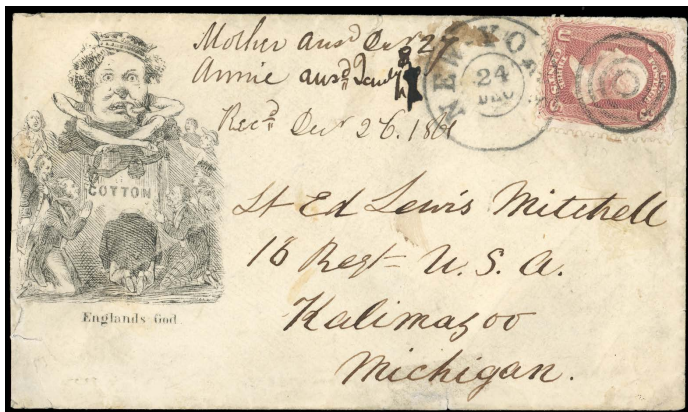 Mother ansd Decr 27
Annie ansd Jany
Recd Decr 26. 1861
NEW-YORK
24
DEC
COTTON
Englands God
Lt Ed Lewis Mitchell
16 Regt U.S.A.
Kalimazoo
Michigan.